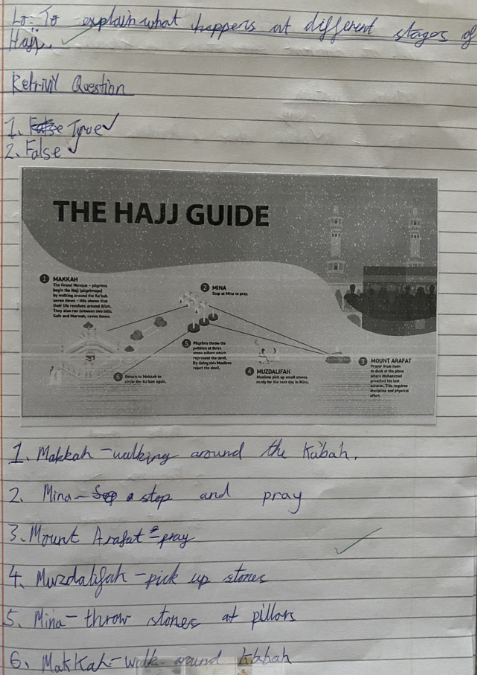 Lo: To explain what happens at different stages of
Hajj.
Retrivil Question
1. True
2. False
THE HAJJ GUIDE
1 MAKKAH
The Grand Mosque – pilgrims
begin the Hajj (pilgrimage)
by walking around the Ka'bah
seven times – this shows that
their life revolves around Allah.
They also run between two hills,
Safa and Marwah, seven times.
2 MINA
Stop at Mina to pray.
3 MOUNT ARAFAT
Prayer from noon
to dusk at the place
where Muhammad
preached his last
sermon. This requires
discipline and physical
effort.
4 MUZDALIFAH
Muslims pick up small stones
ready for the next day in Mina.
5 Pilgrims throw the
pebbles at three
stone pillars which
represent the devil.
By doing this Muslims
reject the devil.
6 Return to Makkah to
circle the Ka'bah again.
1. Makkah - walking around the Ka'bah.
2. Mina - stop and pray
3. Mount Arafat - pray
4. Muzdalifah - pick up stones
5. Mina - throw stones at pillars
6. Makkah - walk around Kabah